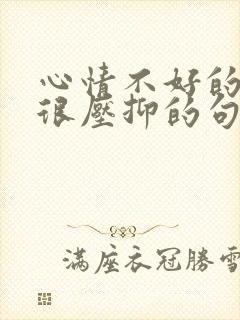 心情不好的
很壓抑的句
滿座衣冠勝雪